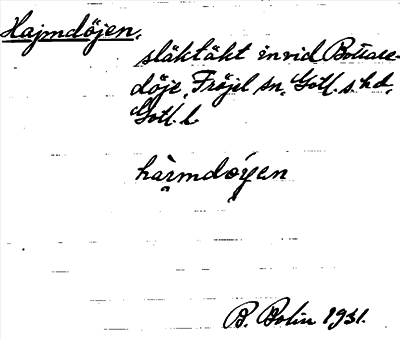 Hajmdöjen.
släktäkt invid Bottare-
döje, Fröjel sn, Gotl. s. hd,
Gotl. l.
hàrmdóyen
B. Bolin 1931.